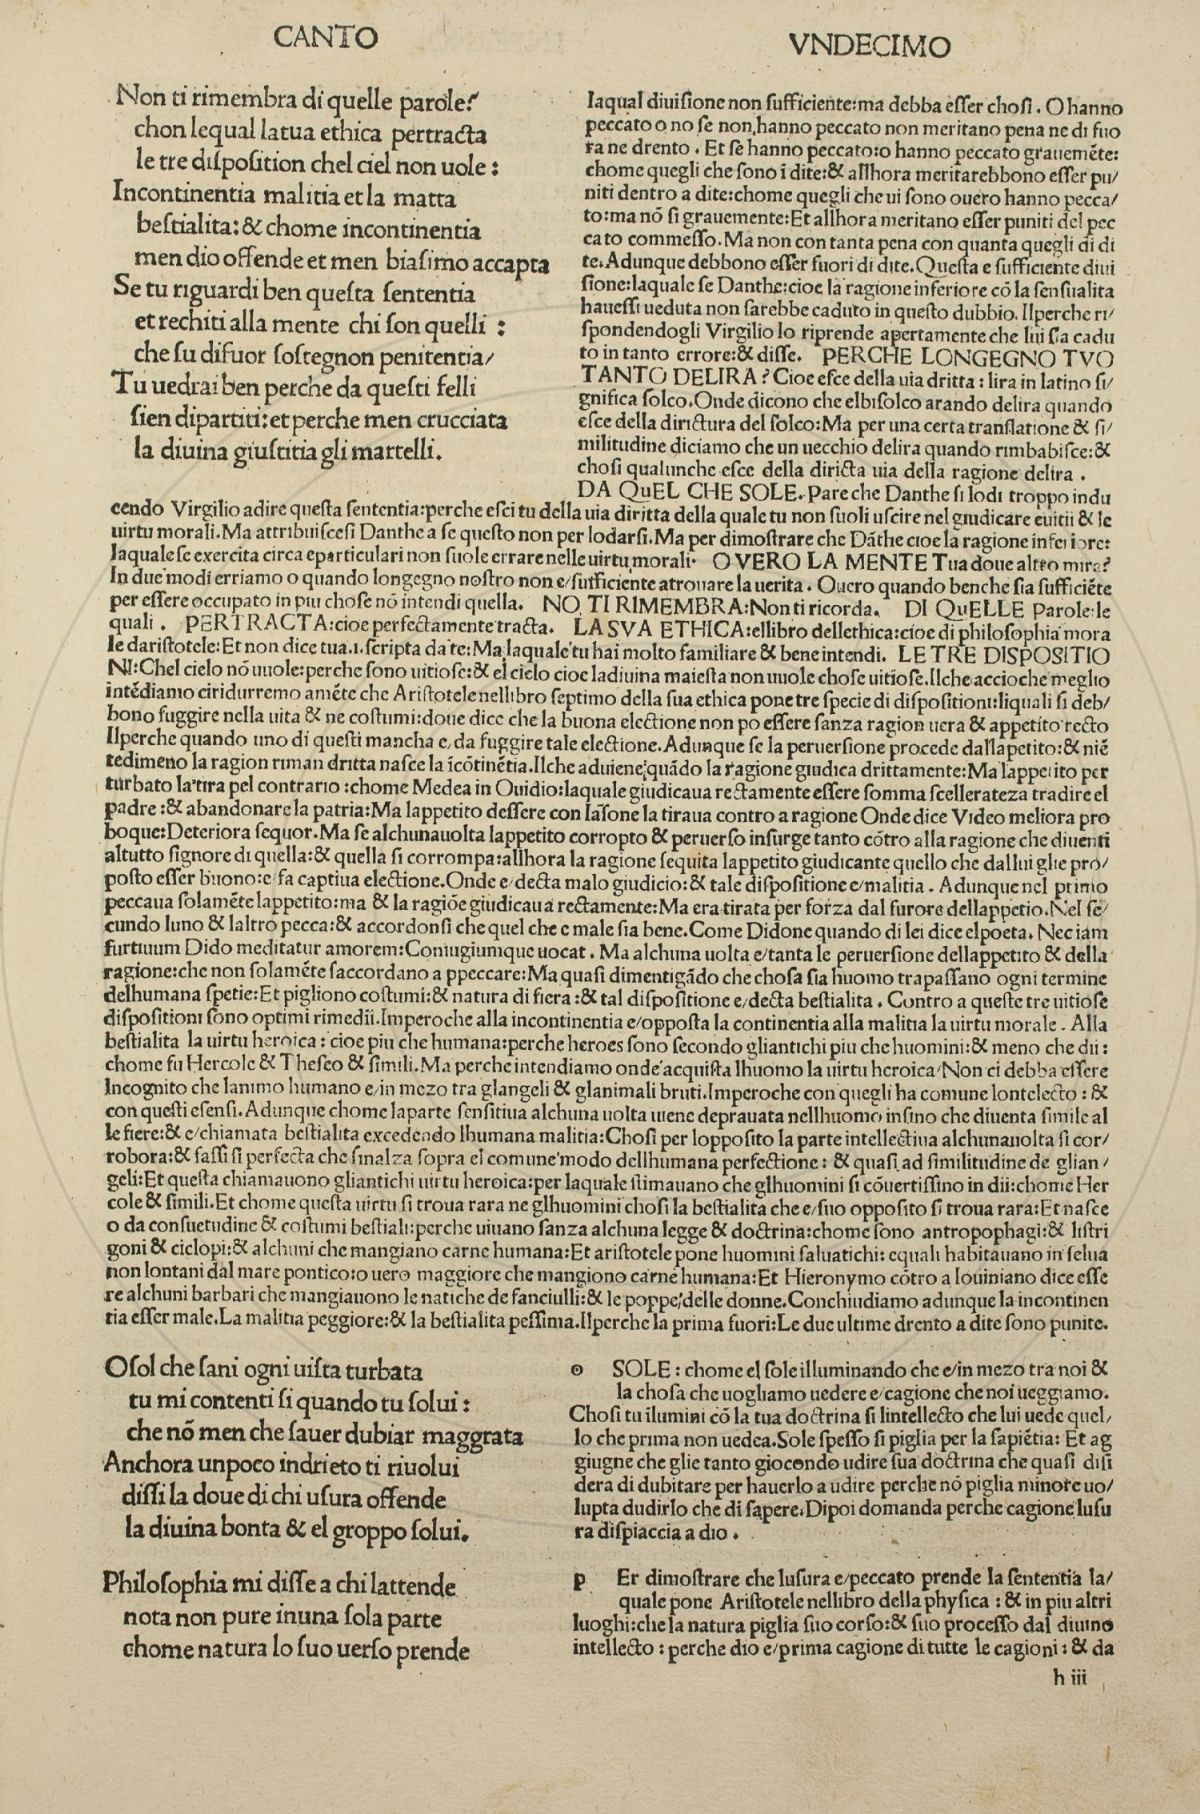 CANTO
VNDECIMO
Non ti rimembra di quelle parole?
chon lequal latua ethica pertracta
le tre disposition chel ciel non uole:
Incontinentia malitia et la matta
bestialita: & chome incontinentia
men dio offende et men biasimo accapta
Se tu riguardi ben questa sententia
et rechiti alla mente chi son quelli:
che su difuor sostegnon penitentia/
Tu uedrai ben perche da questi felli
sien dipartiti: et perche men crucciata
la diuina giustitia gli martelli.
laqual diuisione non sufficiente: ma debba esser chosi. O hanno
peccato o no se non, hanno peccato non meritano pena ne di fuo
ra ne drento. Et se hanno peccato: o hanno peccato grauemẽte:
chome quegli che sono ĩ dite: & allhora meritarebbono esser pu/
niti dentro a dite: chome quegli che ui sono ouero hanno pecca/
to: ma nõ si grauemente: Et allhora meritano esser puniti del pec
cato commesso. Ma non con tanta pena con quanta quegli di di
te. Adunque debbono esser fuori di dite. Questa e sufficiente diui
sione: laquale se Danthe: cioe la ragione inferiore cõ la sensualita
hauessi ueduta non sarebbe caduto in questo dubbio. Ilperche ri/
spondendogli Virgilio lo riprende apertamente che lui sia cadu
to in tanto errore: & disse. PERCHE LONGEGNO TVO
TANTO DELIRA? Cioe esce della uia dritta: lira in latino si/
gnifica solco. Onde dicono che elbisolco arando delira quando
esce della dirictura del solco: Ma per una certa translatione & si/
militudine diciamo che un uecchio delira quando rimbabisce: &
chosi qualunche esce della diricta uia della ragione delira.
DA QuEL CHE SOLE. Pare che Danthe si lodi troppo indu
cendo Virgilio adire questa sententia: perche esci tu della uia diritta della quale tu non suoli uscire nel giudicare euitii & le
uirtu morali. Ma attribuiscesi Danthe a se questo non per lodarsi. Ma per dimostrare che Dãthe cioe la ragione inferiore:
laquale se exercita circa eparticulari non suole errare nelle uirtu morali. O VERO LA MENTE Tua doue altro mira?
In due modi erriamo o quando longegno nostro non e/ sufficiente atrouare la uerita. Ouero quando benche sia sufficiẽte
per essere occupato in piu chose nõ intendi quella. NO, TI RIMEMBRA: Non ti ricorda. DI QuELLE Parole: le
quali. PERTRACTA: cioe perfectamente tracta. LA SVA ETHICA: ellibro dellethica: cioe di philosophia mora
le daristotele: Et non dice tua. i. scripta da te: Ma laquale tu hai molto familiare & bene intendi. LE TRE DISPOSITIO
NI: Chel cielo nõ uuole: perche sono uitiose: & el cielo cioe ladiuina maiesta non uuole chose uitiose. Ilche accioche meglio
intẽdiamo ciridurremo amẽte che Aristotele nellibro septimo della sua ethica pone tre specie di dispositioni: liquali si deb/
bono fuggire nella uita & ne costumi: doue dice che la buona electione non po essere sanza ragion uera & appetito recto
Ilperche quando uno di questi mancha e, da fuggire tale electione. Adunque se la peruersione procede dallapetito: & niẽ
tedimeno la ragion riman dritta nasce la ĩcõtinẽtia. Ilche aduiene, quãdo la ragione giudica drittamente: Ma lappetito per
turbato la tira pel contrario: chome Medea in Ouidio: laquale giudicaua rectamente essere somma scellerateza tradire el
padre: & abandonare la patria: Ma lappetito dessere con Iasone la tiraua contro a ragione Onde dice Video meliora pro
boque: Deteriora sequor. Ma se alchunauolta lappetito corropto & peruerso insurge tanto cõtro alla ragione che diuenti
altutto signore di quella: & quella si corrompa: allhora la ragione sequita lappetito giudicante quello che dallui glie pro/
posto esser buono: e/ fa captiua electione. Onde e/ decta malo giudicio: & tale dispositione e/ malitia. Adunque nel primo
peccaua solamẽte lappetito: ma & la ragiõe giudicaua rectamente: Ma era tirata per forza dal furore dellappetio. Nel se/
cundo luno & laltro pecca: & accordonsi che quel che e male sia bene. Come Didone quando di lei dice elpoeta. Nec iam
furtiuum Dido meditatur amorem: Coniugiumque uocat. Ma alchuna uolta e/ tanta le peruersione dellappetito & della
ragione: che non solamẽte saccordano a ppeccare: Ma quasi dimentigãdo che chosa sia huomo trapassano ogni termine
delhumana spetie: Et pigliono costumi: & natura di fiera: & tal dispositione e/ decta bestialita. Contro a queste tre uitiose
dispositioni sono optimi rimedii. Imperoche alla incontinentia e/ opposta la continentia alla malitia la uirtu morale. Alla
bestialita la uirtu heroica: cioe piu che humana: perche heroes sono secondo gliantichi piu che huomini: & meno che dii:
chome fu Hercole & Theseo & simili. Ma perche intendiamo onde acquista lhuomo la uirtu heroica/ Non ci debba essere
Incognito che lanimo humano e/ in mezo tra glangeli & glanimali bruti. Imperoche con quegli ha comune lontelecto: &
con questi esensi. Adunque chome laparte sensitiua alchuna uolta uiene deprauata nellhuomo insino che diuenta simile al
le fiere: & e/ chiamata bestialita excedendo lhumana malitia: Chosi per lopposito la parte intellectiua alchunauolta si cor/
robora: & fassi si perfecta che sinalza sopra el comune modo dellhumana perfectione: & quasi ad similitudine de glian/
geli: Et questa chiamauono gliantichi uirtu heroica: per laquale stimauano che glhuomini si cõuertissino in dii: chome Her
cole & simili. Et chome questa uirtu si troua rara ne glhuomini chosi la bestialita che e/ suo opposito si troua rara: Et nasce
o da consuetudine & costumi bestiali: perche uiuano sanza alchuna legge & doctrina: chome sono antropophagi: & listri
goni & ciclopi: & alchuni che mangiano carne humana: Et aristotele pone huomini saluatichi: equali habitauano in selua
non lontani dal mare pontico: o uero maggiore che mangiono carne humana: Et Hieronymo cõtro a Iouiniano dice esse
re alchuni barbari che mangiauono le natiche de fanciulli: & le poppe, delle donne. Conchiudiamo adunque la incontinen
tia esser male. La malitia peggiore: & la bestialita pessima. Ilperche la prima fuori: Le due ultime drento a dite sono punite.
O sol che sani ogni uista turbata
tu mi contenti si quando tu solui:
che nõ men che sauer dubiar maggrata
Anchora unpoco indrieto ti riuolui
dissi la doue di chi usura offende
la diuina bonta & el groppo solui.
o SOLE: chome el sole illuminando che e/ in mezo tra noi &
la chosa che uogliamo uedere e/ cagione che noi ueggiamo.
Chosi tu ĩlumini cõ la tua doctrina si lintellecto che lui uede quel,
lo che prima non uedea. Sole spesso si piglia per la sapiẽtia: Et ag
giugne che glie tanto giocondo udire sua doctrina che quasi disi
dera di dubitare per hauerlo a udire perche nõ piglia minore uo/
lupta dudirlo che di sapere. Dipoi domanda perche cagione lusu
ra dispiaccia a dio.
Philosophia mi disse a chi lattende
nota non pure inuna sola parte
chome natura lo suo uerso prende
p Er dimostrare che lusura e/ peccato prende la sententia la/
quale pone Aristotele nellibro della physica: & in piu altri
luoghi: che la natura piglia suo corso: & suo processo dal diuino
intellecto: perche dio e/ prima cagione di tutte le cagioni: & da
h iii